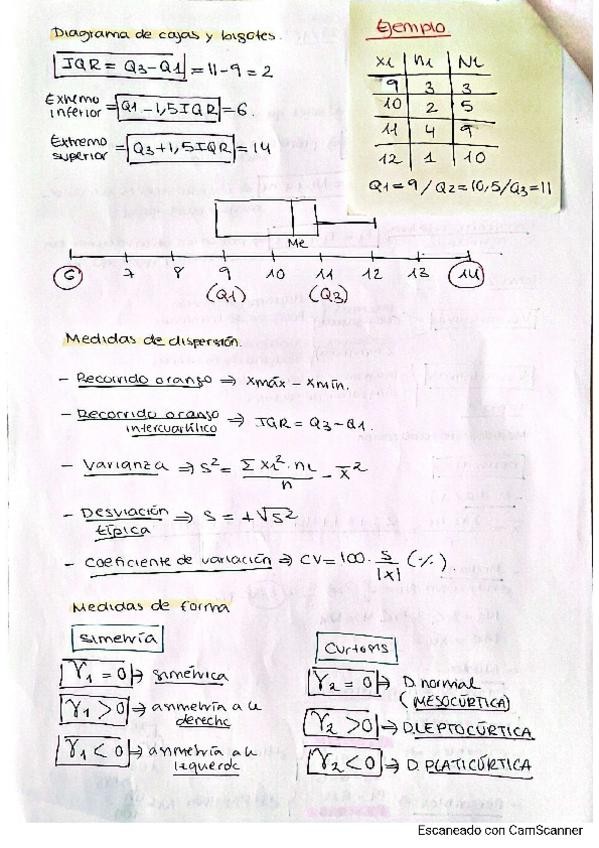 Diagrama de cajas y bigotes.
IQR = Q3-Q1 = 11-9 = 2
Extremo inferior = Q1-1,5IQR = 6.
Extremo superior = Q3+1,5IQR = 14
Ejemplo
xi ni Ni
9 3 3
10 2 5
11 4 9
12 1 10
Q1=9/Q2=10,5/Q3=11
Me
6 7 8 9 10 11 12 13 14
(Q1) (Q3)
Medidas de dispersión.
- Recorrido o rango ⇒ xmáx - xmín.
- Recorrido o rango intercuartílico ⇒ IQR = Q3-Q1.
- Varianza ⇒ S² = Σxi²·ni/n - x̄²
- Desviación típica ⇒ S = +√S²
- Coeficiente de variación ⇒ CV = 100 · S/|x̄| (%).
Medidas de forma
Simetría
γ1 = 0 → simétrica
γ1 > 0 → asimetría a la derecha
γ1 < 0 → asimetría a la izquierda
Curtosis
γ2 = 0 → D. normal (MESOCÚRTICA)
γ2 > 0 → D. LEPTOCÚRTICA
γ2 < 0 → D. PLATICÚRTICA
Escaneado con CamScanner